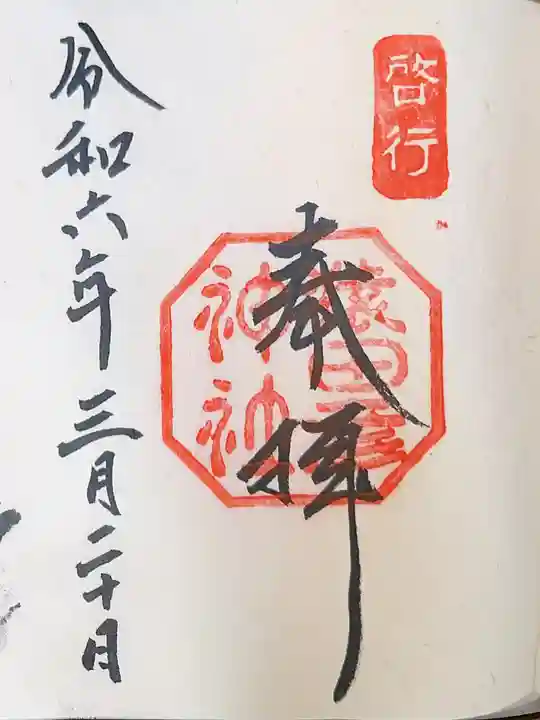 啓行
奉拝
猿田彦神社
令和六年三月二十日